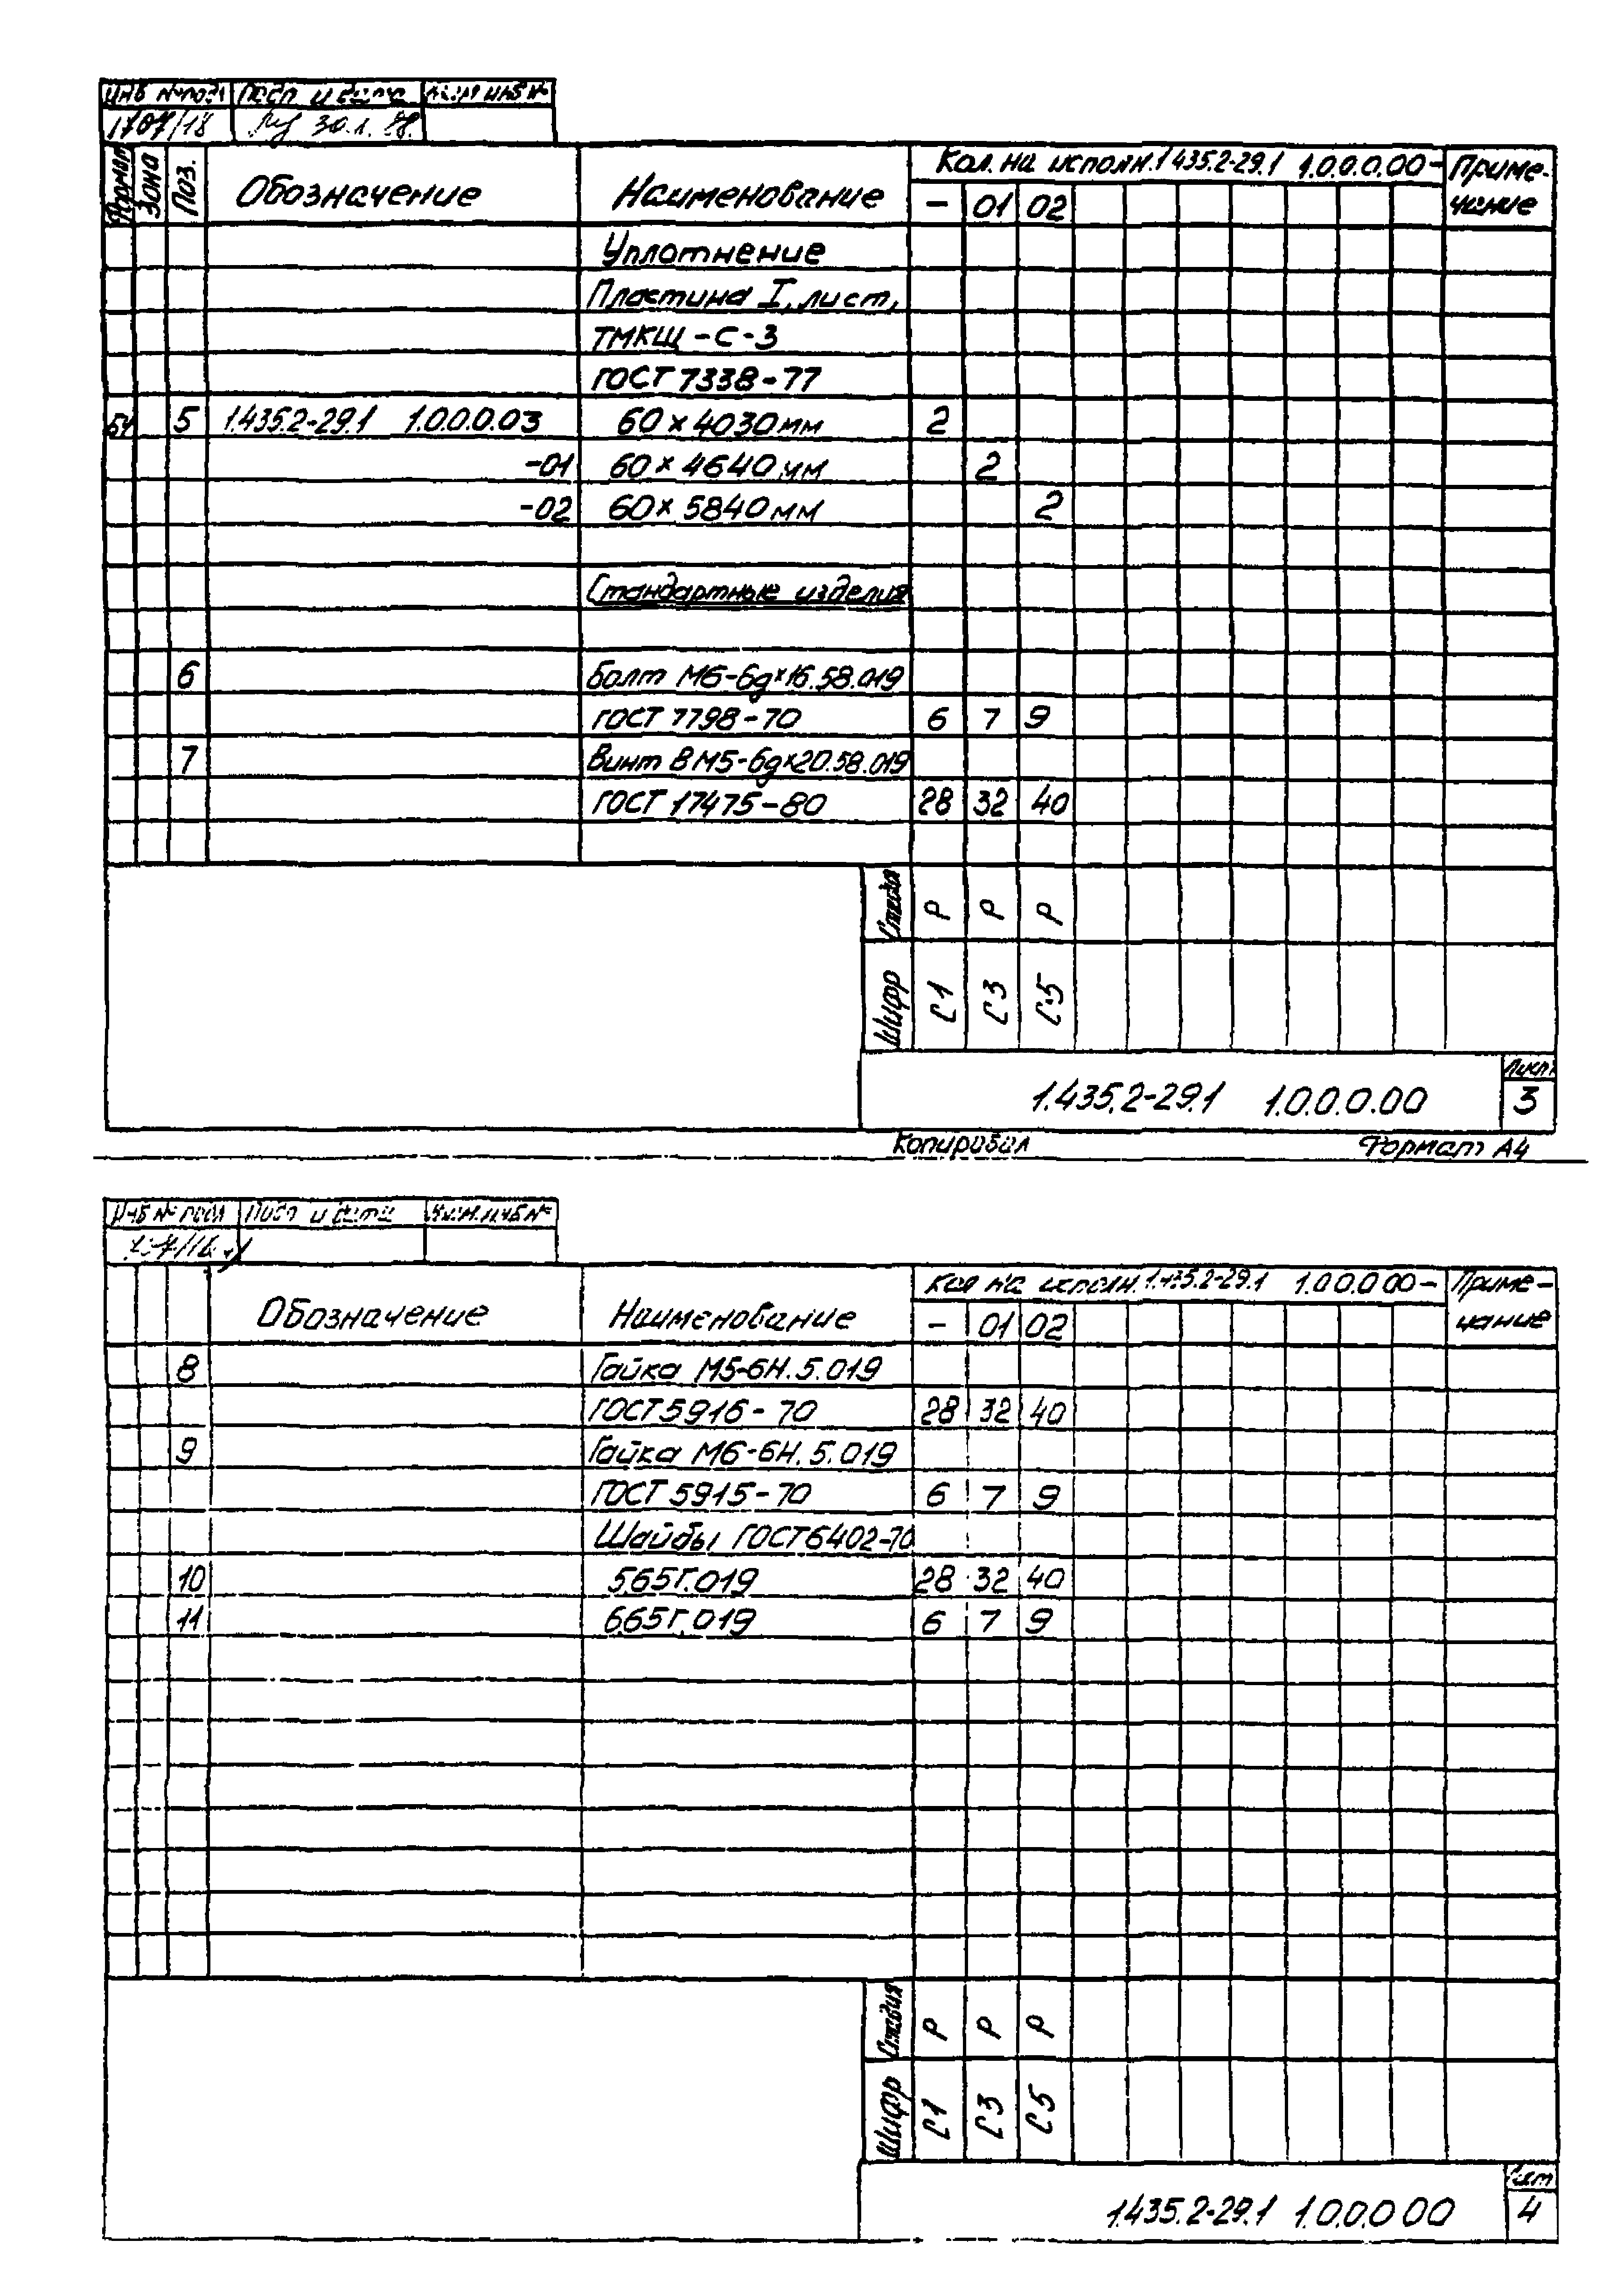 Инв № подл Подп. и дата Взам инв №
1707/18 30.1.88.
Формат Зона Поз. Обозначение Наименование Кол. на исполн. 1.435.2-29.1 1.0.0.0.00- Приме-
чание
- 01 02
Уплотнение
Пластина I, лист,
ТМКЩ-С-3
ГОСТ 7338-77
БЧ 5 1.435.2-29.1 1.0.0.0.03 60×4030мм 2
-01 60×4640мм 2
-02 60×5840мм 2
Стандартные изделия
6 Болт М6-6g×16.58.019
ГОСТ 7798-70 6 7 9
7 Винт В М5-6g×20.58.019
ГОСТ 17475-80 28 32 40
Стадия Р Р Р
Шифр С1 С3 С5
Лист
1.435.2-29.1 1.0.0.0.00 3
Копировал Формат А4
Инв № подл Подп и дата Взам.инв №
Обозначение Наименование Кол на исполн. 1.435.2-29.1 1.0.0.0.00- Приме-
чание
- 01 02
8 Гайка М5-6Н.5.019
ГОСТ 5916-70 28 32 40
9 Гайка М6-6Н.5.019
ГОСТ 5915-70 6 7 9
Шайбы ГОСТ 6402-70
10 5.65Г.019 28 32 40
11 6.65Г.019 6 7 9
Стадия Р Р Р
Шифр С1 С3 С5
Лист
1.435.2-29.1 1.0.0.0.00 4